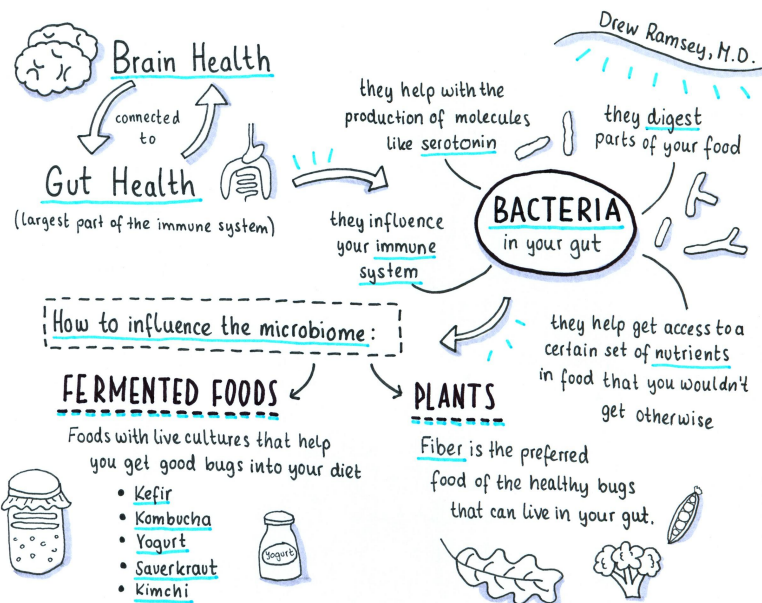 Drew Ramsey, M.D.
Brain Health
connected
to
Gut Health
(largest part of the immune system)
they help with the
production of molecules
like serotonin
they digest
parts of your food
BACTERIA
in your gut
they influence
your immune
system
they help get access to a
certain set of nutrients
in food that you wouldn't
get otherwise
How to influence the microbiome:
FERMENTED FOODS
Foods with live cultures that help
you get good bugs into your diet
• Kefir
• Kombucha
• Yogurt
• Sauerkraut
• Kimchi
Yogurt
PLANTS
Fiber is the preferred
food of the healthy bugs
that can live in your gut.